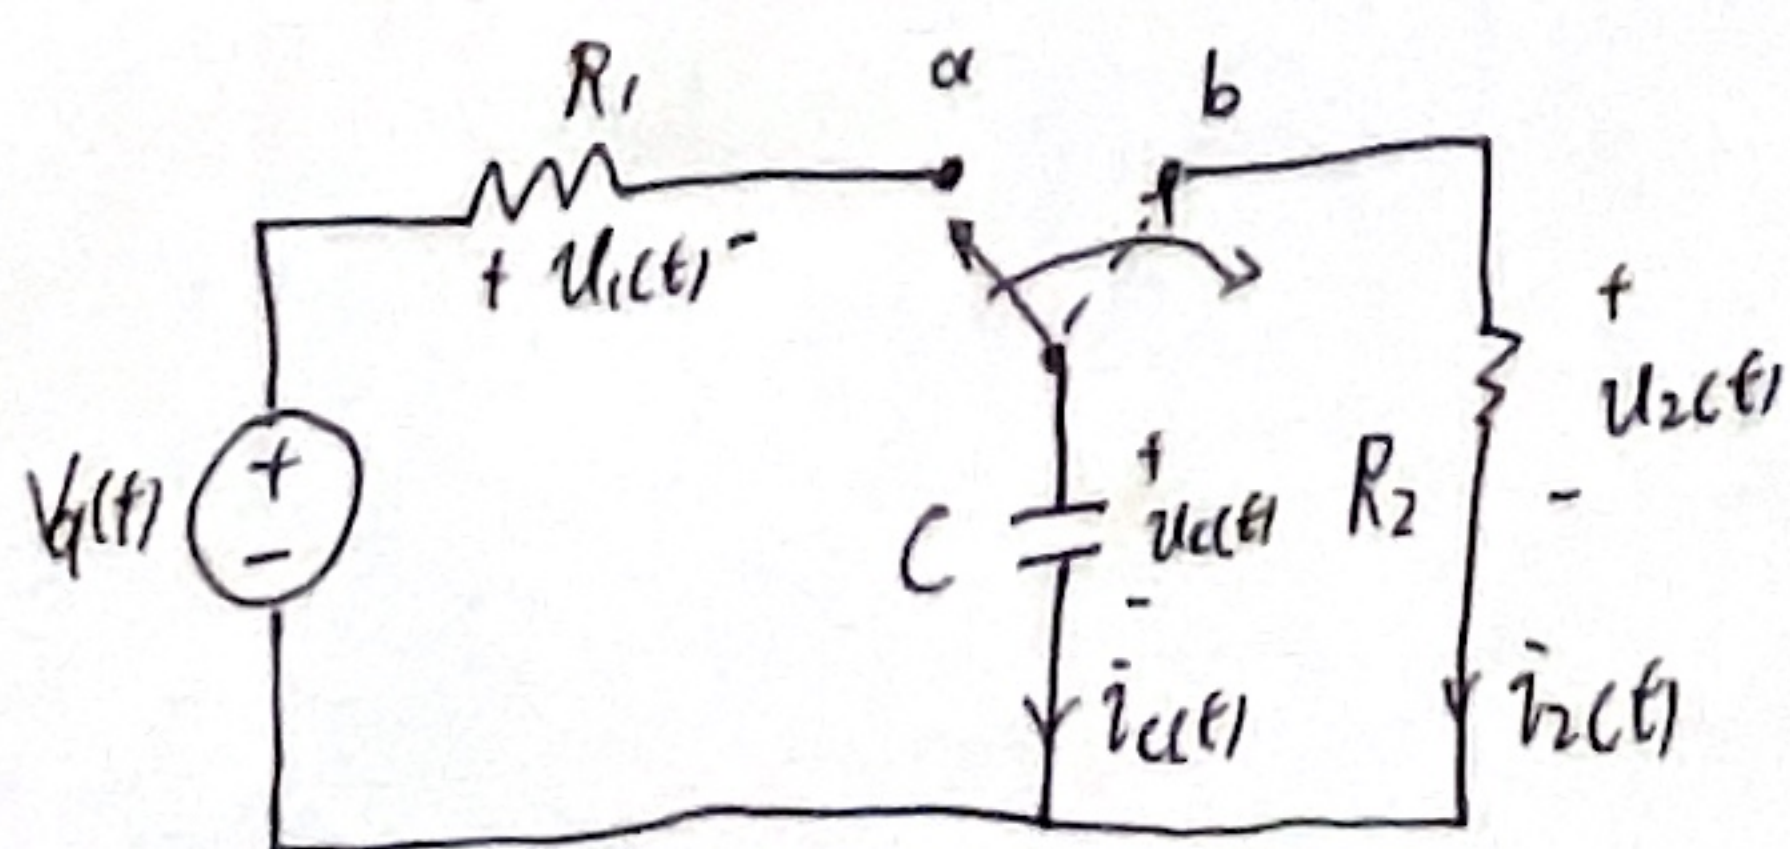 R1
a
b
+ u1(t) -
+
u2(t)
-
Vg(t)
+
-
C
+
uc(t)
-
R2
ic(t)
i2(t)